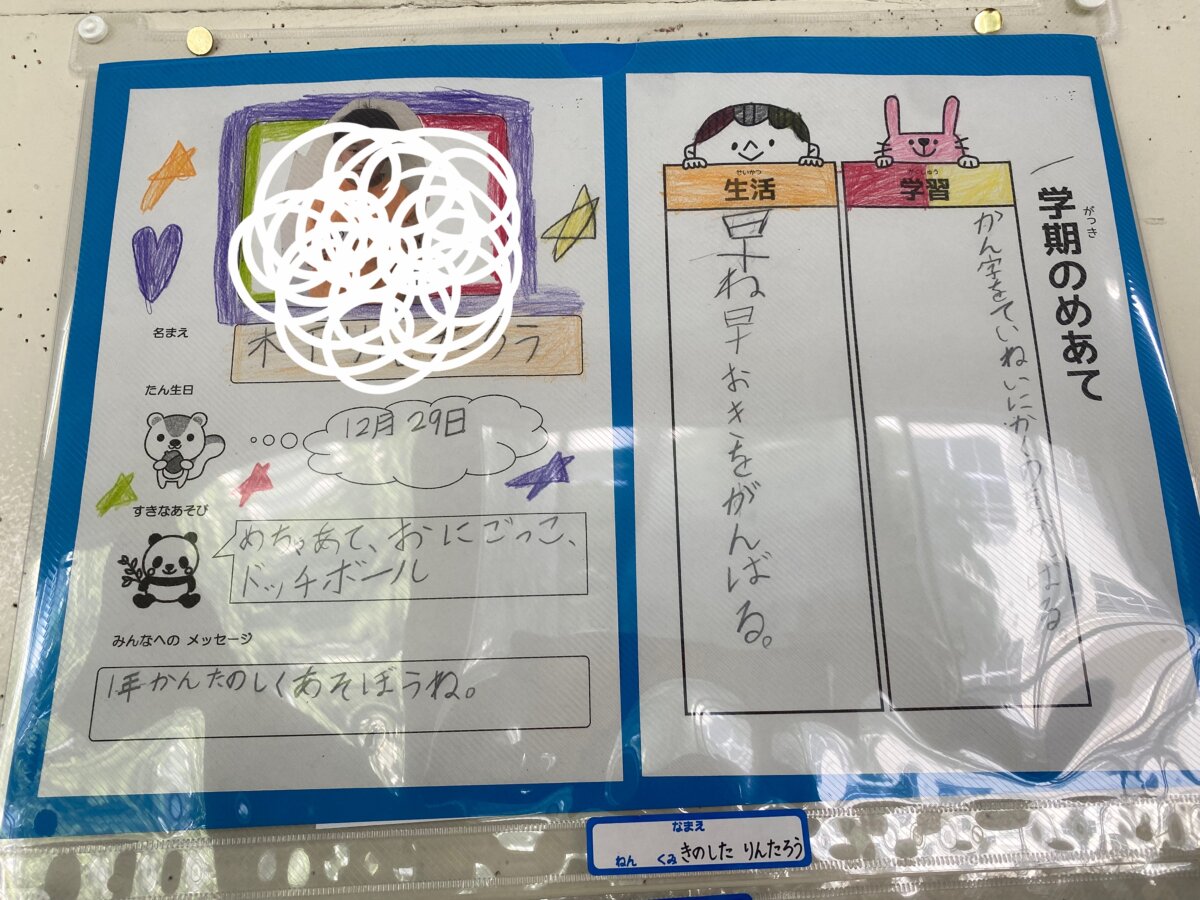 名まえ
たん生日
12月29日
すきなあそび
めちゃあて、おにごっこ、
ドッチボール
みんなへの メッセージ
1年かんたのしくあそぼうね。
一学期のめあて
がっき
学習
かん字をていねいにかくうをがんばる
生活
せいかつ
早ね早おきをがんばる。
なまえ
ねん くみ きのした りんたろう